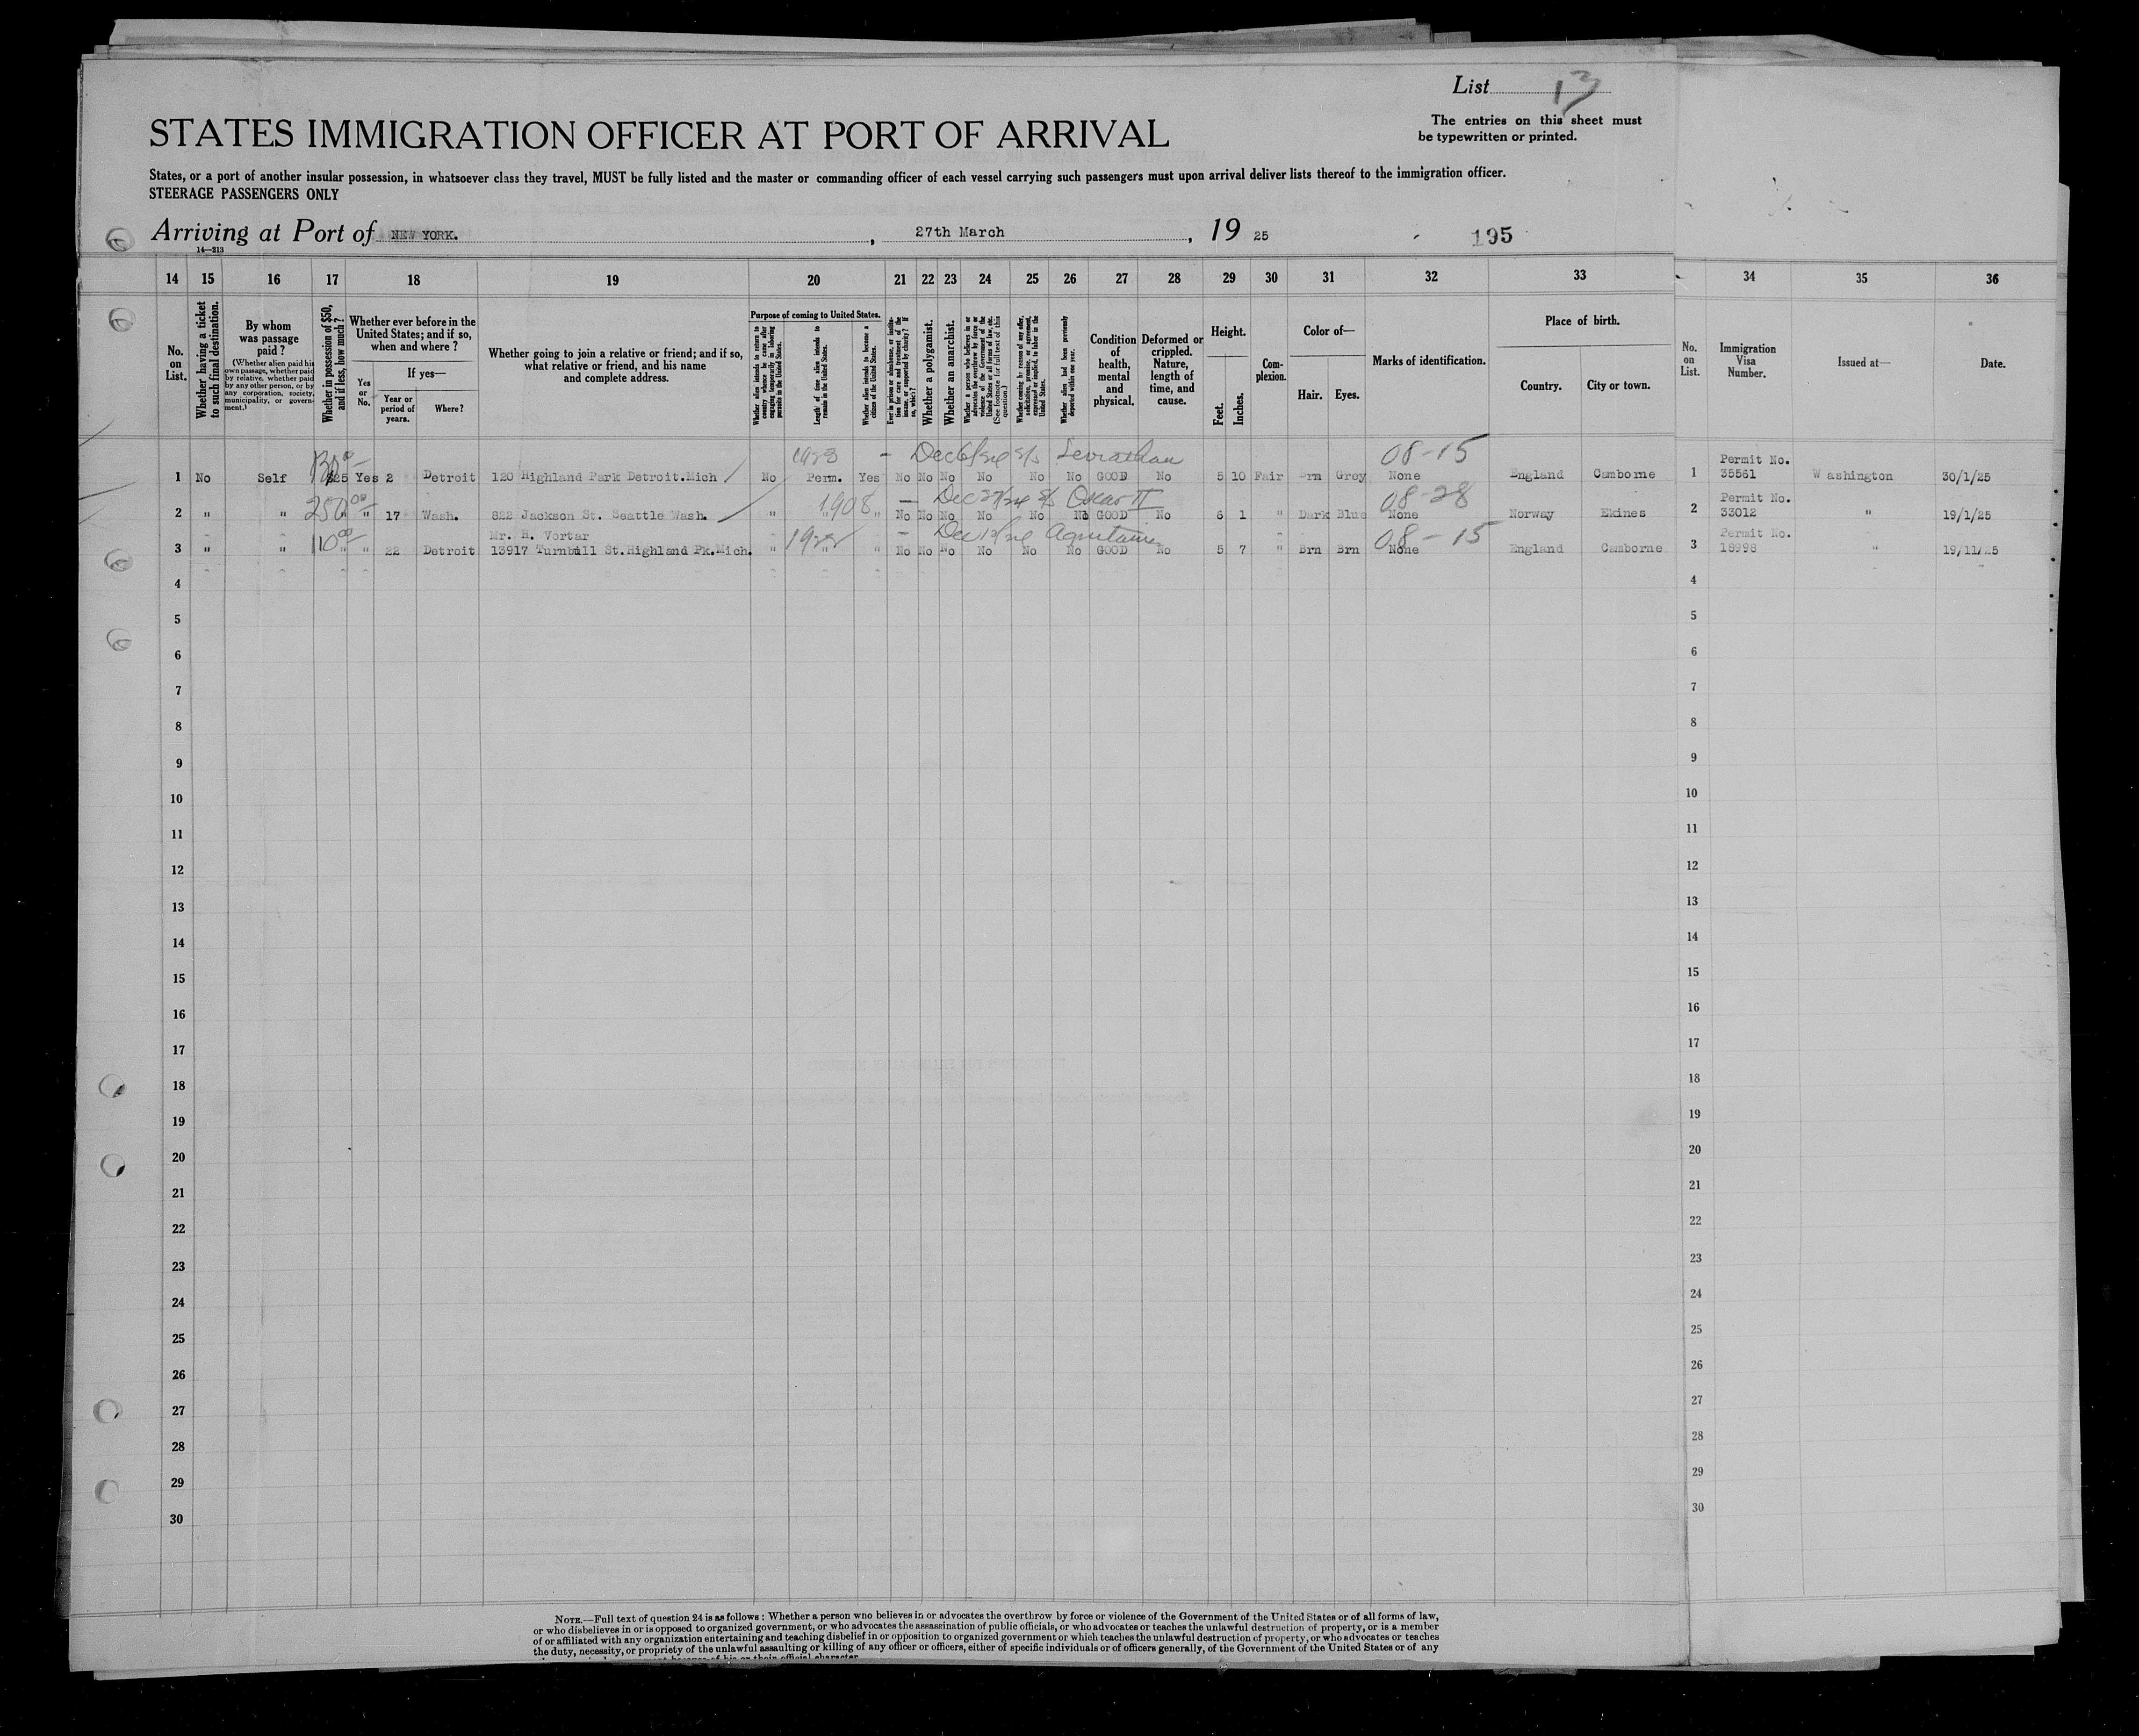 List 13
The entries on this sheet must
be typewritten or printed.
STATES IMMIGRATION OFFICER AT PORT OF ARRIVAL
States, or a port of another insular possession, in whatsoever class they travel, MUST be fully listed and the master or commanding officer of each vessel carrying such passengers must upon arrival deliver lists thereof to the immigration officer.
STEERAGE PASSENGERS ONLY
Arriving at Port of NEW YORK. , 27th March , 19 25 195
14—213
14 15 16 17 18 19 20 21 22 23 24 25 26 27 28 29 30 31 32 33 34 35 36
No. on List.
Whether having a ticket to such final destination.
By whom was passage paid?
(Whether alien paid his own passage, whether paid by relative, whether paid by any other person, or by any corporation, society, municipality, or government.)
Whether in possession of $50, and if less, how much?
Whether ever before in the United States; and if so, when and where?
Yes or No.
If yes—
Year or period of years.
Where?
Whether going to join a relative or friend; and if so, what relative or friend, and his name and complete address.
Purpose of coming to United States.
Whether alien intends to return to country whence he came after engaging temporarily in laboring pursuits in the United States.
Length of time alien intends to remain in the United States.
Whether alien intends to become a citizen of the United States.
Whether a polygamist.
Whether an anarchist.
Condition of health, mental and physical.
Deformed or crippled. Nature, length of time, and cause.
Height.
Feet.
Inches.
Complexion.
Color of—
Hair.
Eyes.
Marks of identification.
Place of birth.
Country.
City or town.
No. on List.
Immigration Visa Number.
Issued at—
Date.
1923 – Dec 6/24 s/s Leviathan 08-15
1 No Self $25 Yes 2 Detroit 120 Highland Park Detroit.Mich No Perm. Yes No No No No No No GOOD No 5 10 Fair Brn Grey None England Camborne 1 Permit No. 35561 Washington 30/1/25
250 00 1908 – Dec 27/24 s/s Oskar II 08-28
2 " " " " 17 Wash. 822 Jackson St. Seattle Wash. " " " No No No No No No GOOD No 6 1 " Dark Blue None Norway Ekines 2 Permit No. 33012 " 19/1/25
110 00 Mr. H. Vortar 1922 – Dec 13/24 Aquitania 08-15
3 " " " " 22 Detroit 13917 Turnbull St.Highland Pk.Mich. " " " No No No No No No GOOD No 5 7 " Brn Brn None England Camborne 3 Permit No. 18998 " 19/11/25
4 4
5 5
6 6
7 7
8 8
9 9
10 10
11 11
12 12
13 13
14 14
15 15
16 16
17 17
18 18
19 19
20 20
21 21
22 22
23 23
24 24
25 25
26 26
27 27
28 28
29 29
30 30
NOTE.—Full text of question 24 is as follows: Whether a person who believes in or advocates the overthrow by force or violence of the Government of the United States or of all forms of law,
or who disbelieves in or is opposed to organized government, or who advocates the assassination of public officials, or who advocates or teaches the unlawful destruction of property, or is a member
of or affiliated with any organization entertaining and teaching disbelief in or opposition to organized government or which teaches the unlawful destruction of property, or who advocates or teaches
the duty, necessity, or propriety of the unlawful assaulting or killing of any officer or officers, either of specific individuals or of officers generally, of the Government of the United States or of any